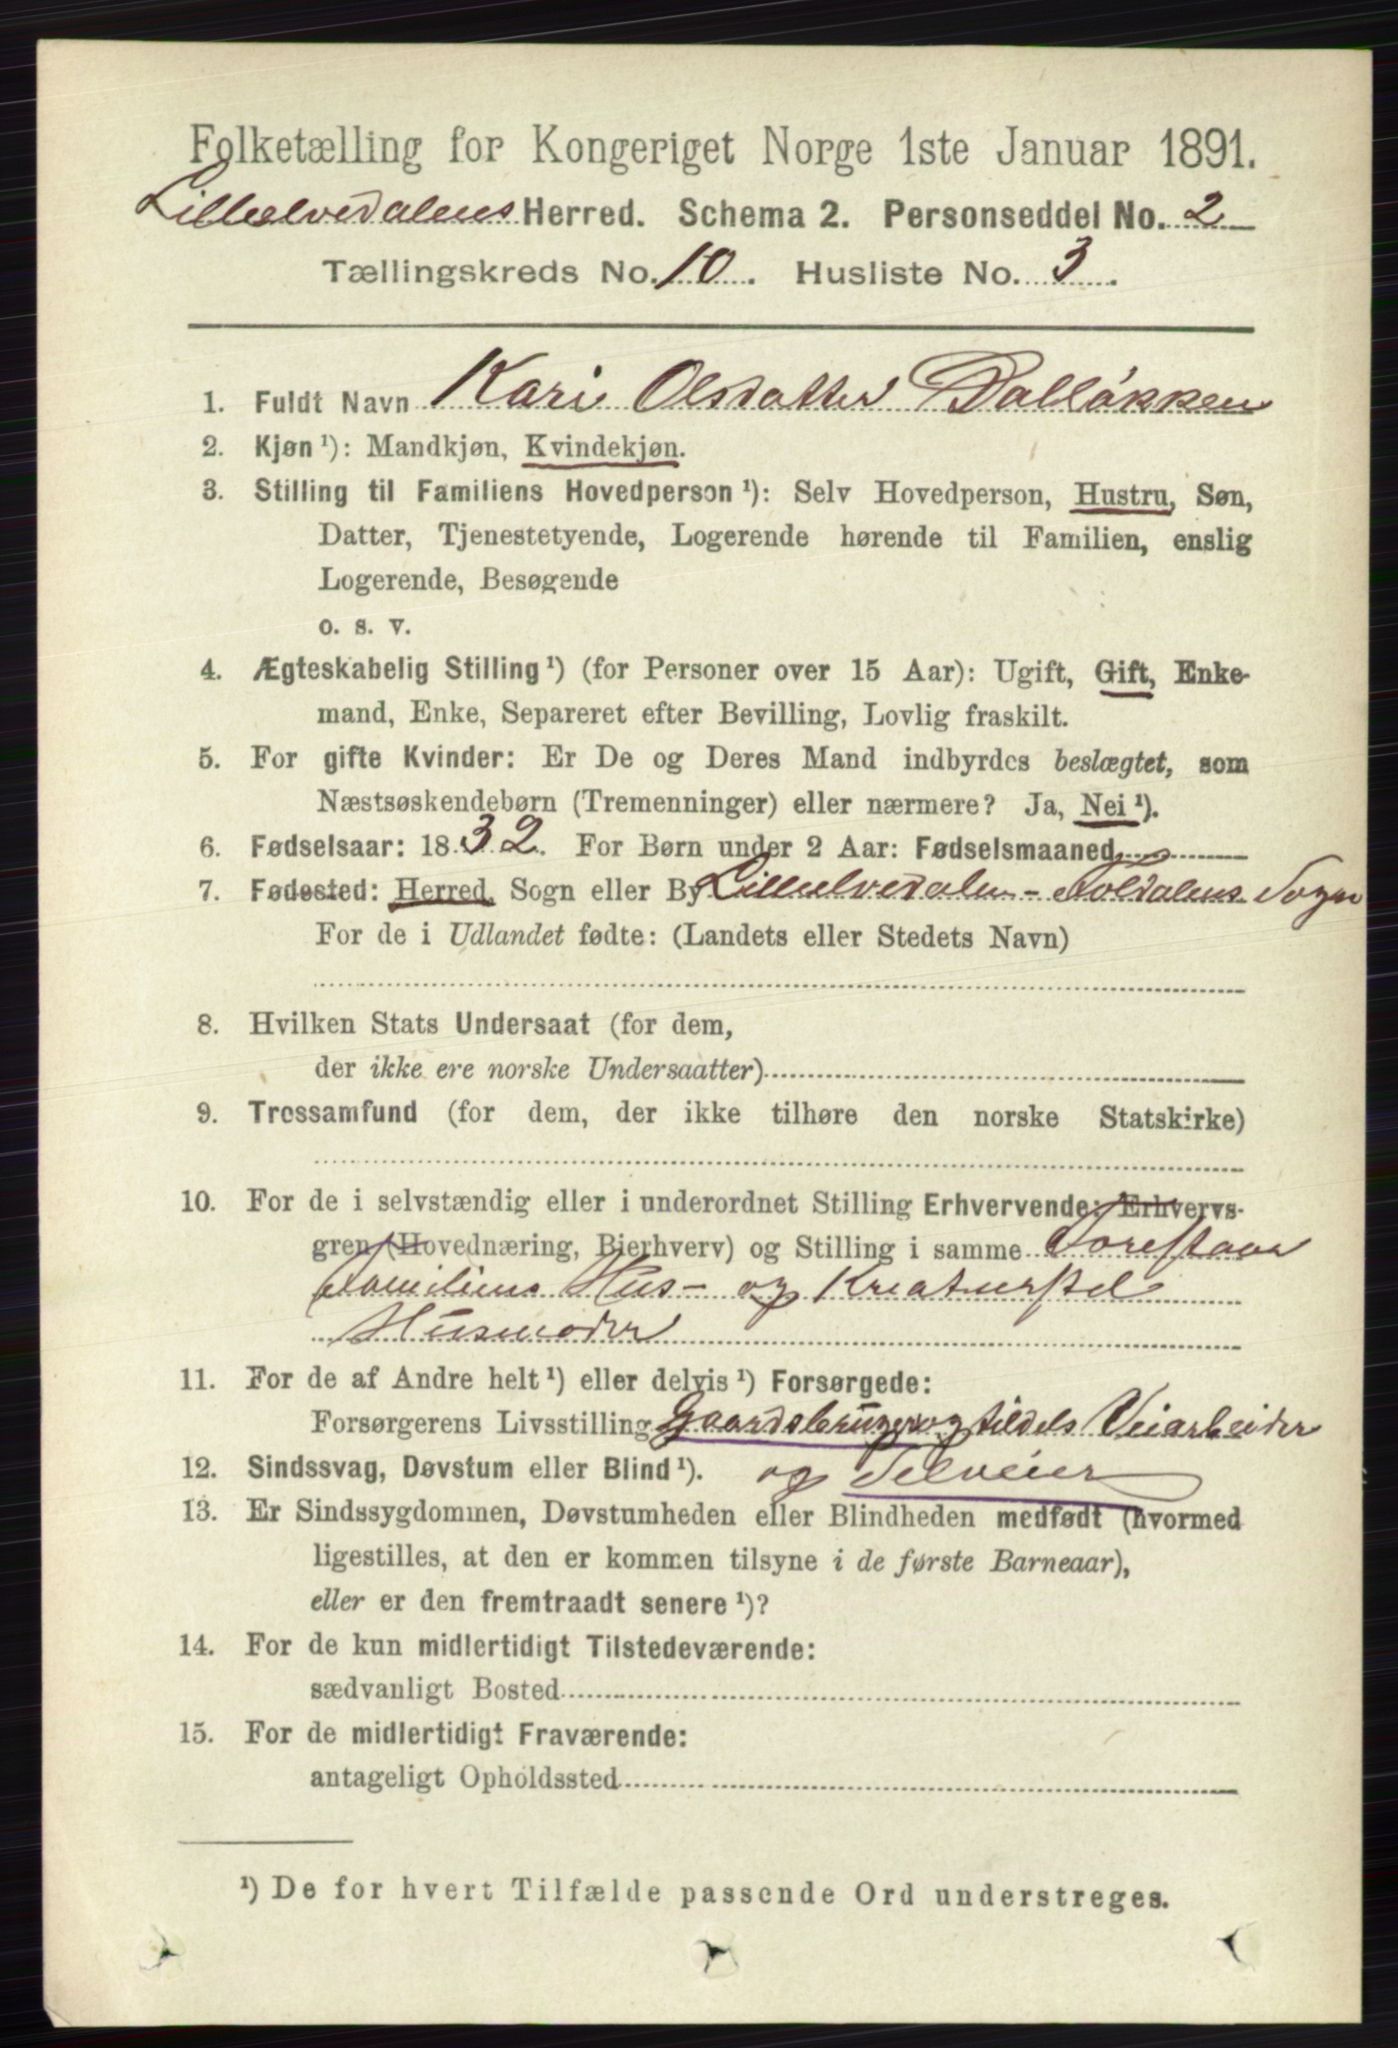 Folketælling for Kongeriget Norge 1ste Januar 1891.
Lilleelvedalens Herred. Schema 2. Personseddel No. 2
Tællingskreds No. 10. Husliste No. 3.
1. Fuldt Navn Kari Olsdatter Dalløkken
2. Kjøn ¹): Mandkjøn, Kvindekjøn.
3. Stilling til Familiens Hovedperson ¹): Selv Hovedperson, Hustru, Søn,
Datter, Tjenestetyende, Logerende hørende til Familien, enslig
Logerende, Besøgende
o. s. v.
4. Ægteskabelig Stilling ¹) (for Personer over 15 Aar): Ugift, Gift, Enke-
mand, Enke, Separeret efter Bevilling, Lovlig fraskilt.
5. For gifte Kvinder: Er De og Deres Mand indbyrdes beslægtet, som
Næstsøskendebørn (Tremenninger) eller nærmere? Ja, Nei ¹).
6. Fødselsaar: 1832. For Børn under 2 Aar: Fødselsmaaned
7. Fødested: Herred, Sogn eller By Lilleelvedalen - Foldalens Sogn
For de i Udlandet fødte: (Landets eller Stedets Navn)
8. Hvilken Stats Undersaat (for dem,
der ikke ere norske Undersaatter)
9. Trossamfund (for dem, der ikke tilhøre den norske Statskirke)
10. For de i selvstændig eller i underordnet Stilling Erhvervende: Erhvervs-
gren (Hovednæring, Bierhverv) og Stilling i samme Forestaar
Familiens Hus- og Kreaturstel
Husmoder
11. For de af Andre helt ¹) eller delvis ¹) Forsørgede:
Forsørgerens Livsstilling Gaardsbruger og tildels Veiarbeider
12. Sindssvag, Døvstum eller Blind ¹). og Selveier
13. Er Sindssygdommen, Døvstumheden eller Blindheden medfødt (hvormed
ligestilles, at den er kommen tilsyne i de første Barneaar),
eller er den fremtraadt senere ¹)?
14. For de kun midlertidigt Tilstedeværende:
sædvanligt Bosted
15. For de midlertidigt Fraværende:
antageligt Opholdssted
¹) De for hvert Tilfælde passende Ord understreges.